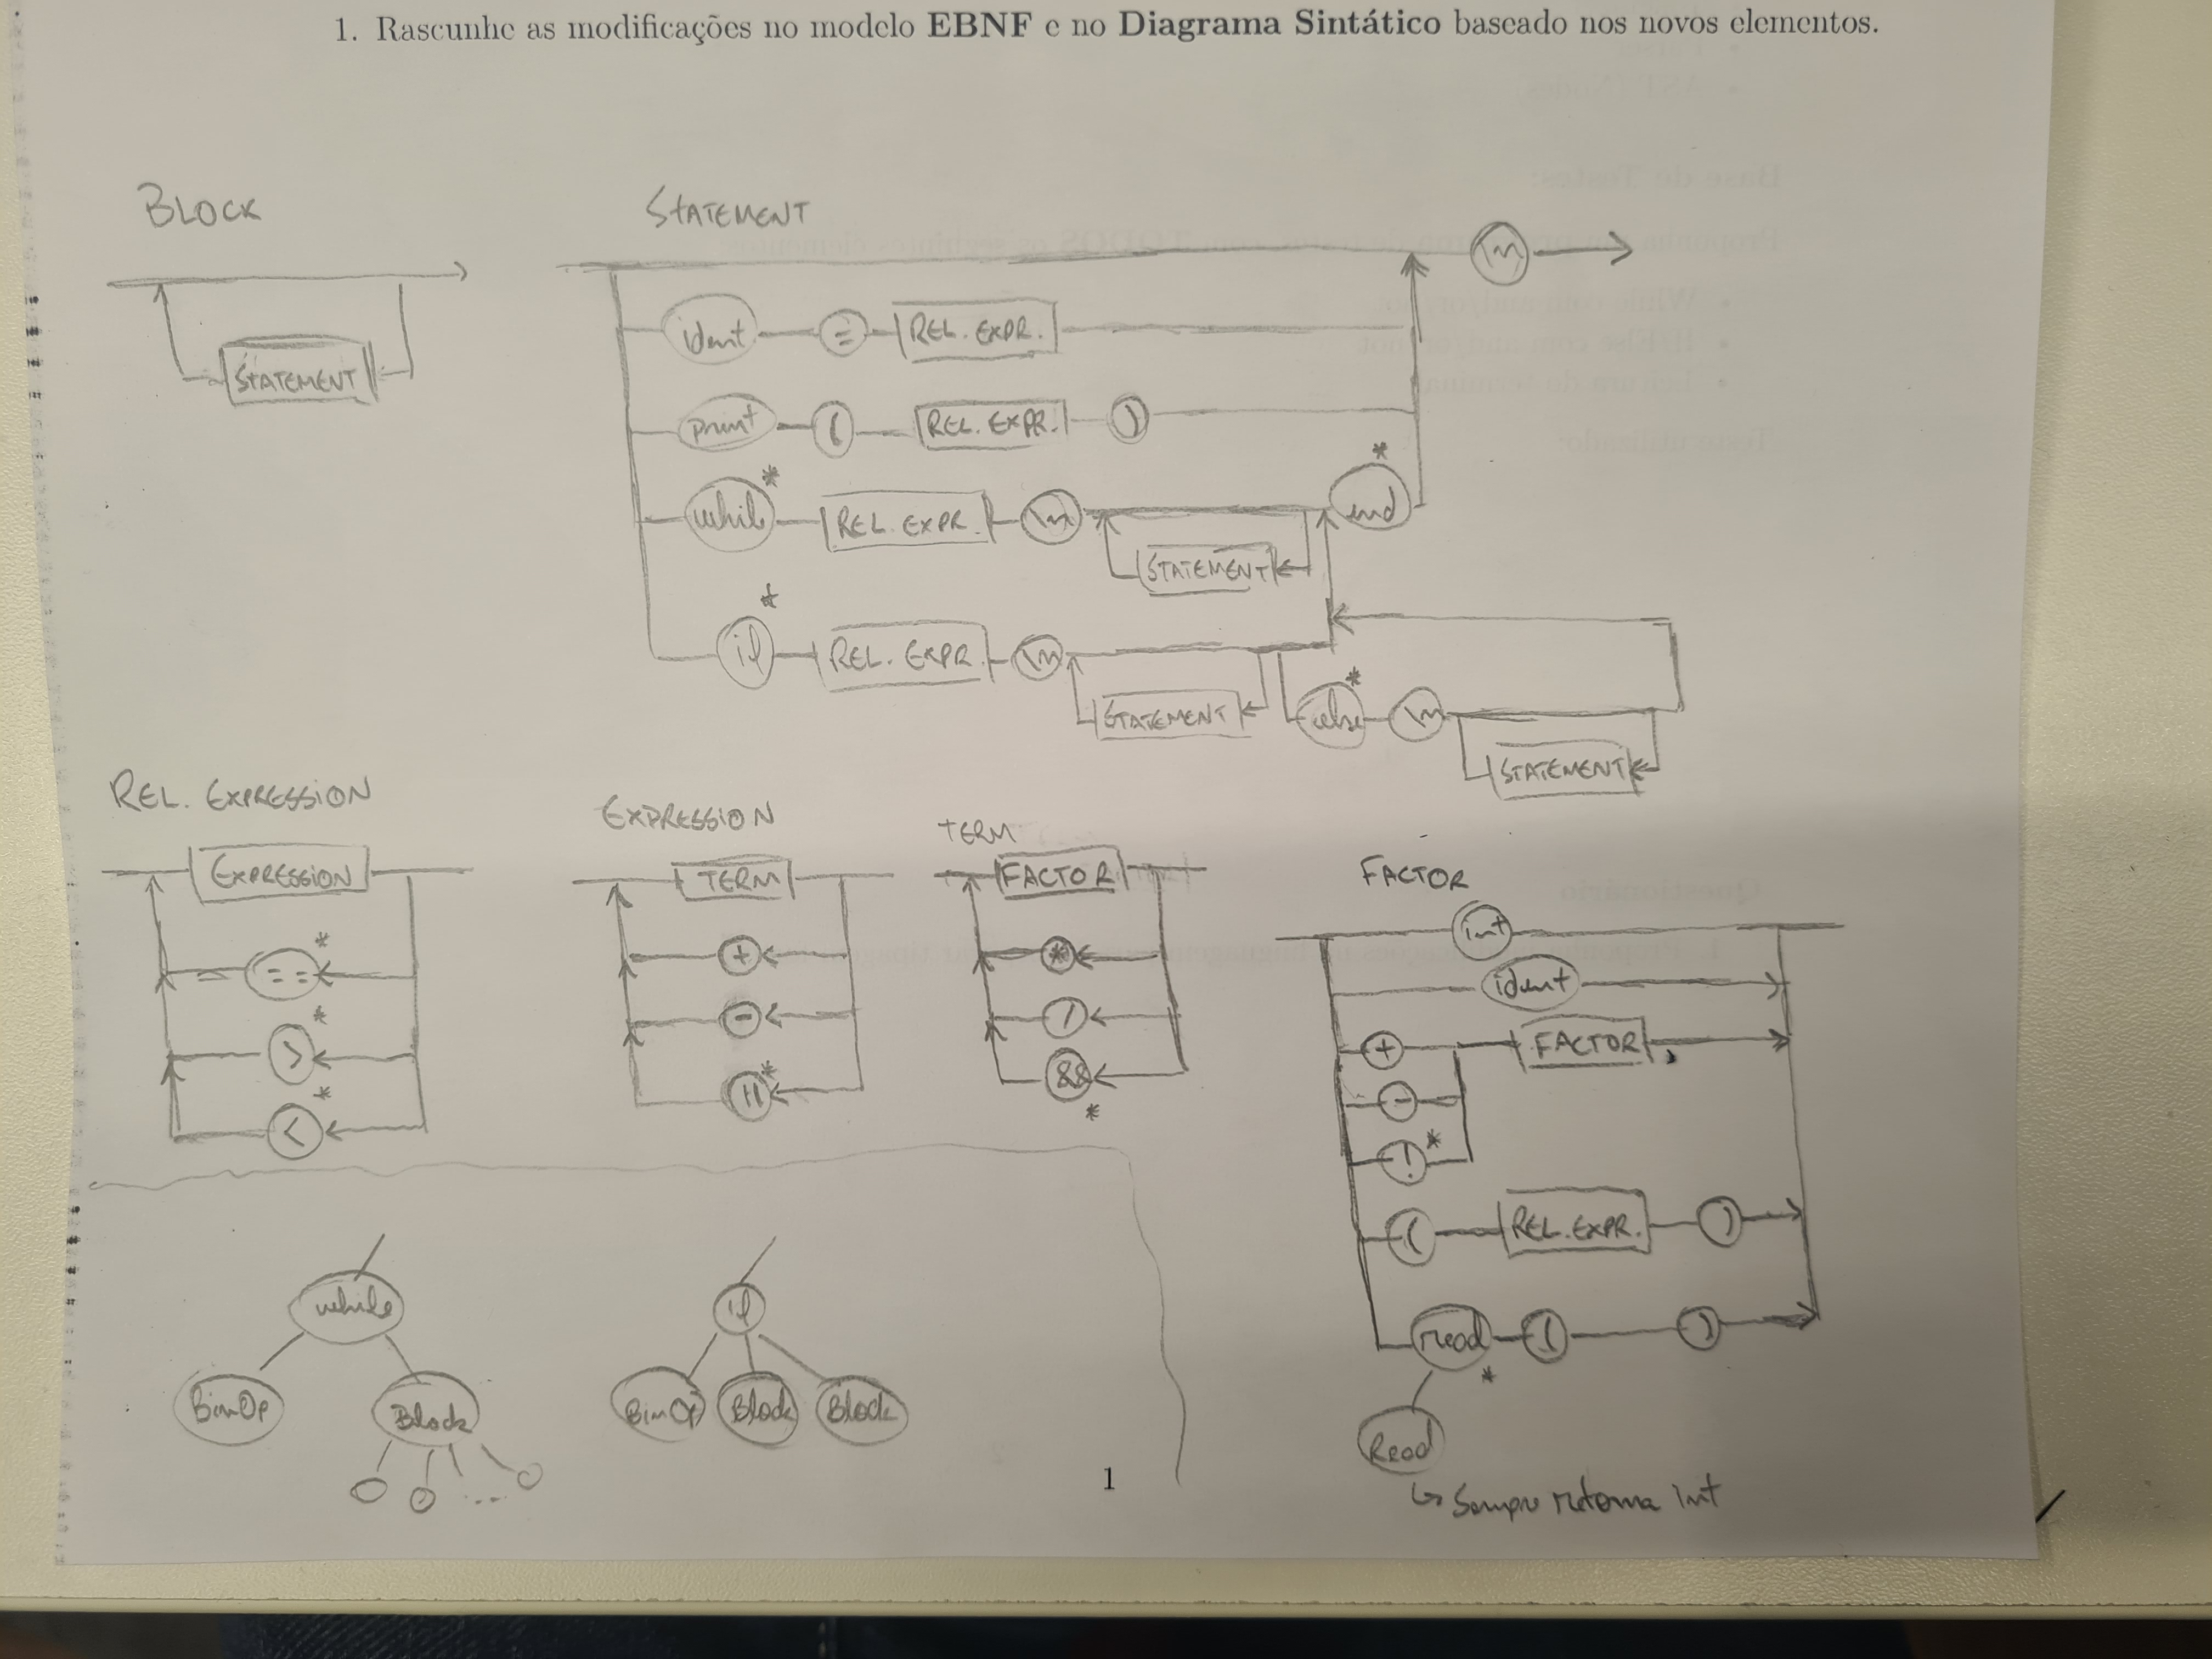 1. Rascunhe as modificações no modelo EBNF e no Diagrama Sintático baseado nos novos elementos.
BLOCK
STATEMENT
STATEMENT
\n
ident = REL. EXPR.
print ( REL. EXPR. )
while * REL. EXPR. \n end *
STATEMENT
if * REL. EXPR. \n
STATEMENT else * \n
STATEMENT
REL. EXPRESSION
EXPRESSION
== *
> *
< *
EXPRESSION
TERM
+
-
|| *
TERM
FACTOR
*
/
&& *
FACTOR
int
ident
+ FACTOR
-
! *
( REL. EXPR. )
read * ( )
Read
↳ Sempre retorna int
while
BinOp Block
...
if
BinOp Block Block
1